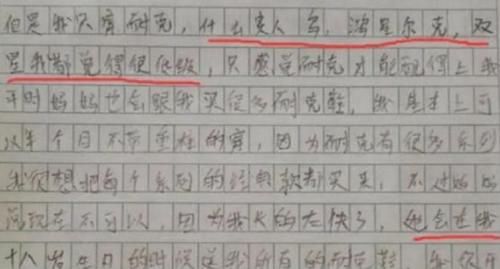 但是我只穿耐克，什么贵人鸟，鸿星尔克，双
星我都觉得很低级，只感觉耐克才能配得上我
平时妈妈也会跟我买很多耐克鞋，我基本上可
以半个月不带重样的穿，因为耐克有很多系列
我很想把每个系列的经典款都买来，不过妈妈
说现在不可以，因为我长的太快了，她会在我
十八岁生日的时候送我所有的耐克鞋，